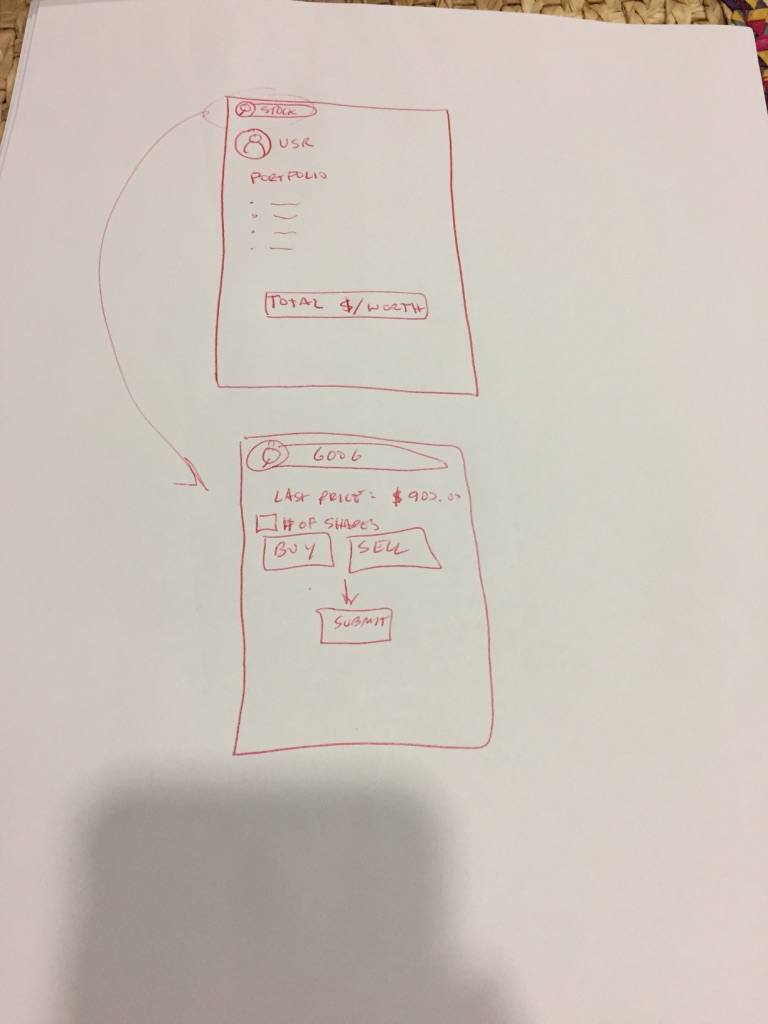 STOCK
USR
PORTFOLIO
TOTAL $/WORTH
GOOG
LAST PRICE: $900.00
# OF SHARES
BUY SELL
SUBMIT